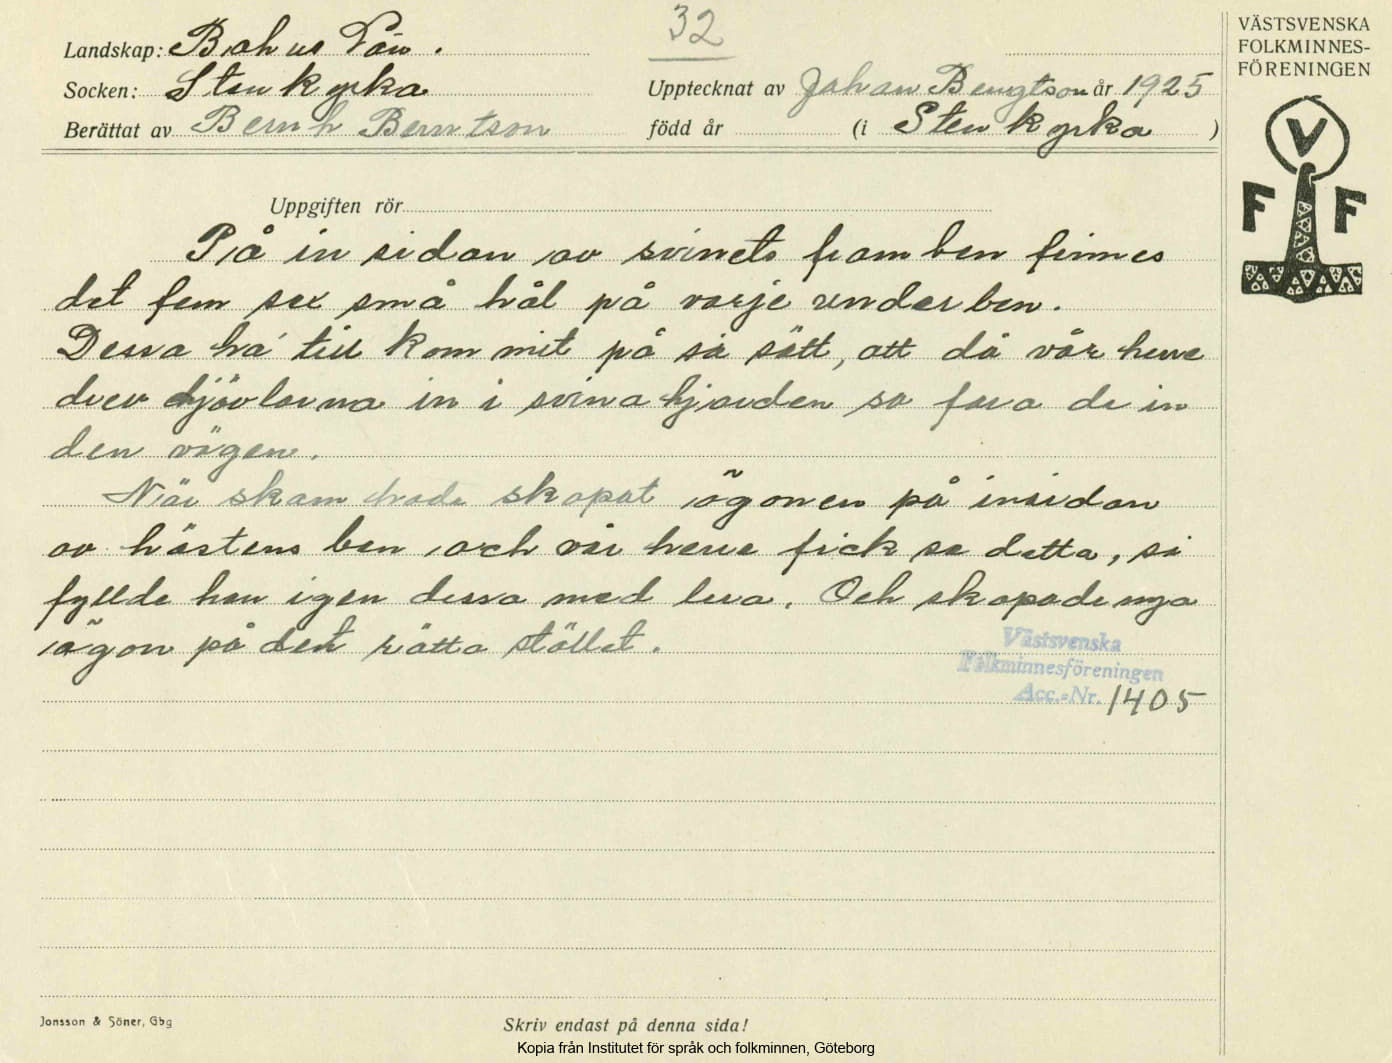 32
VÄSTSVENSKA
FOLKMINNES-
FÖRENINGEN
Landskap: Bohus Län.
Socken: Stenkyrka
Upptecknat av Johan Bengtson år 1925
Berättat av Bernh Berntson
född år (i Stenkyrka )
V
F F
Uppgiften rör
På insidan av svinets framben finnes
det fem sex små hål på varje underben.
Dessa ha till kommit på så sätt, att då vår herre
drev djävlarna in i svinahjorden so fara de in
den vägen.
När skam hade skapat ögonen på insidan
av hästens ben och vår herre fick se detta, så
fyllde han igen dessa med lera. Och skapade nya
ögon på det rätta stället.
Västsvenska
Folkminnesföreningen
Acc.-Nr. 1405
Jonsson & Söner, Gbg
Skriv endast på denna sida!
Kopia från Institutet för språk och folkminnen, Göteborg